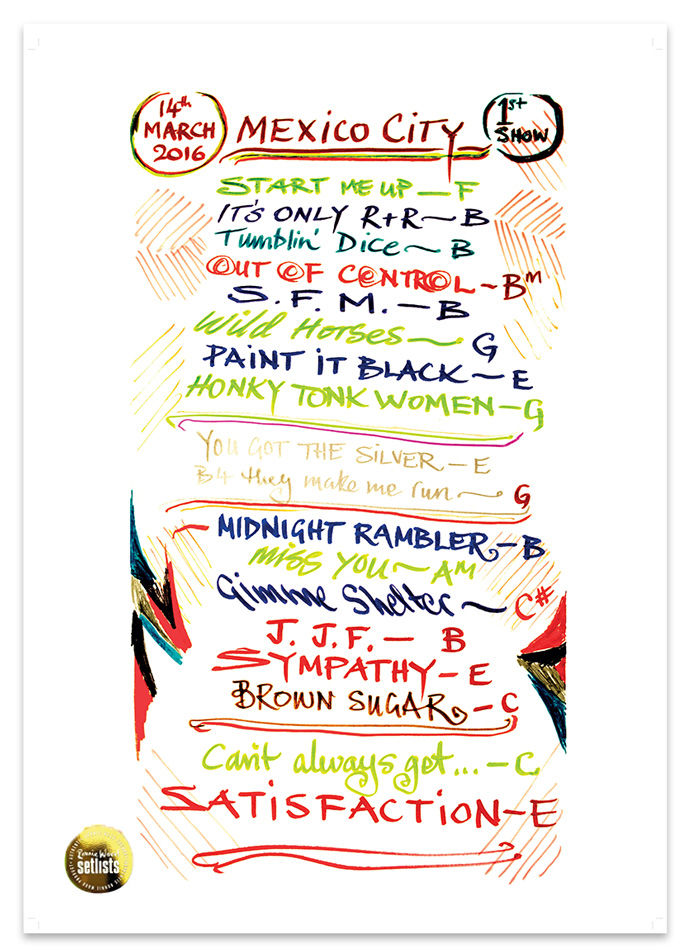 14th
MARCH
2016
MEXICO CITY
1st
SHOW
START ME UP — F
IT'S ONLY R+R ~ B
Tumblin' Dice ~ B
OUT OF CONTROL ~ Bm
S.F.M. — B
Wild Horses ~ G
PAINT IT BLACK ~ E
HONKY TONK WOMEN — G
YOU GOT THE SILVER — E
B4 they make me run ~ G
— MIDNIGHT RAMBLER — B
MISS YOU ~ AM
Gimme Shelter ~ C#
J.J.F. — B
SYMPATHY — E
BROWN SUGAR — C
Can't always get... — C
SATISFACTION — E
Ronnie Wood
setlists